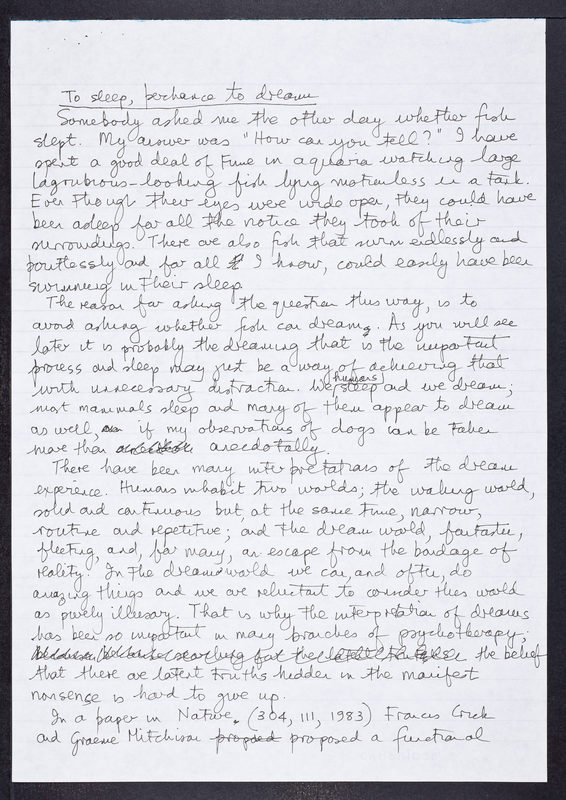 To sleep, perchance to dream
Somebody asked me the other day whether fish
slept. My answer was "How can you tell?" I have
spent a good deal of time in aquaria watching large
lagubrious-looking fish lying motionless in a tank.
Even though their eyes were wide open, they could have
been asleep for all the notice they took of their
surroundings. There are also fish that swim endlessly and
pointlessly and, for all I know, could easily have been
swimming in their sleep.
The reason for asking the question this way, is to
avoid asking whether fish can dream. As you will see
later it is probably the dreaming that is the important
process and sleep may just be a way of achieving that
with unnecessary distraction. We humans sleep and we dream;
most mammals sleep and many of them appear to dream
as well, if my observations of dogs can be taken
more than anecdotally.
There have been many interpretations of the dream
experience. Humans inhabit two worlds; the waking world,
solid and continuous but, at the same time, narrow,
routine and repetitive; and the dream world, fantastic,
fleeting, and, for many, an escape from the bondage of
reality. In the dreamworld we can, and often, do
amazing things and we are reluctant to consider this world
as purely illusory. That is why the interpretation of dreams
has been so important in many branches of psychotherapy;
the belief
that there are latent truths hidden in the manifest
nonsense is hard to give up.
In a paper in Nature, (304, 111, 1983) Francis Crick
and Graeme Mitchison proposed a functional